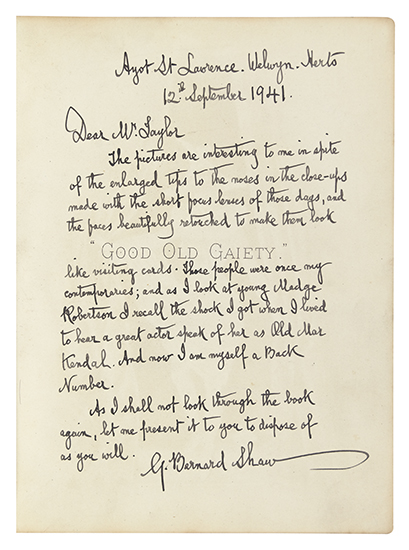 Ayot St Lawrence. Welwyn. Herts
12th September 1941.
Dear Mr. Taylor
The pictures are interesting to me in spite
of the enlarged tips to the noses in the close-ups
made with the short focus lenses of those days, and
the faces beautifully retouched to make them look
"GOOD OLD GAIETY."
like visiting cards. Those people were once my
contemporaries; and as I look at young Madge
Robertson I recall the shock I got when I lived
to hear a great actor speak of her as Old Mar
Kendal. And now I am myself a Back
Number.
As I shall not look through the book
again, let me present it to you to dispose of
as you will.
G. Bernard Shaw